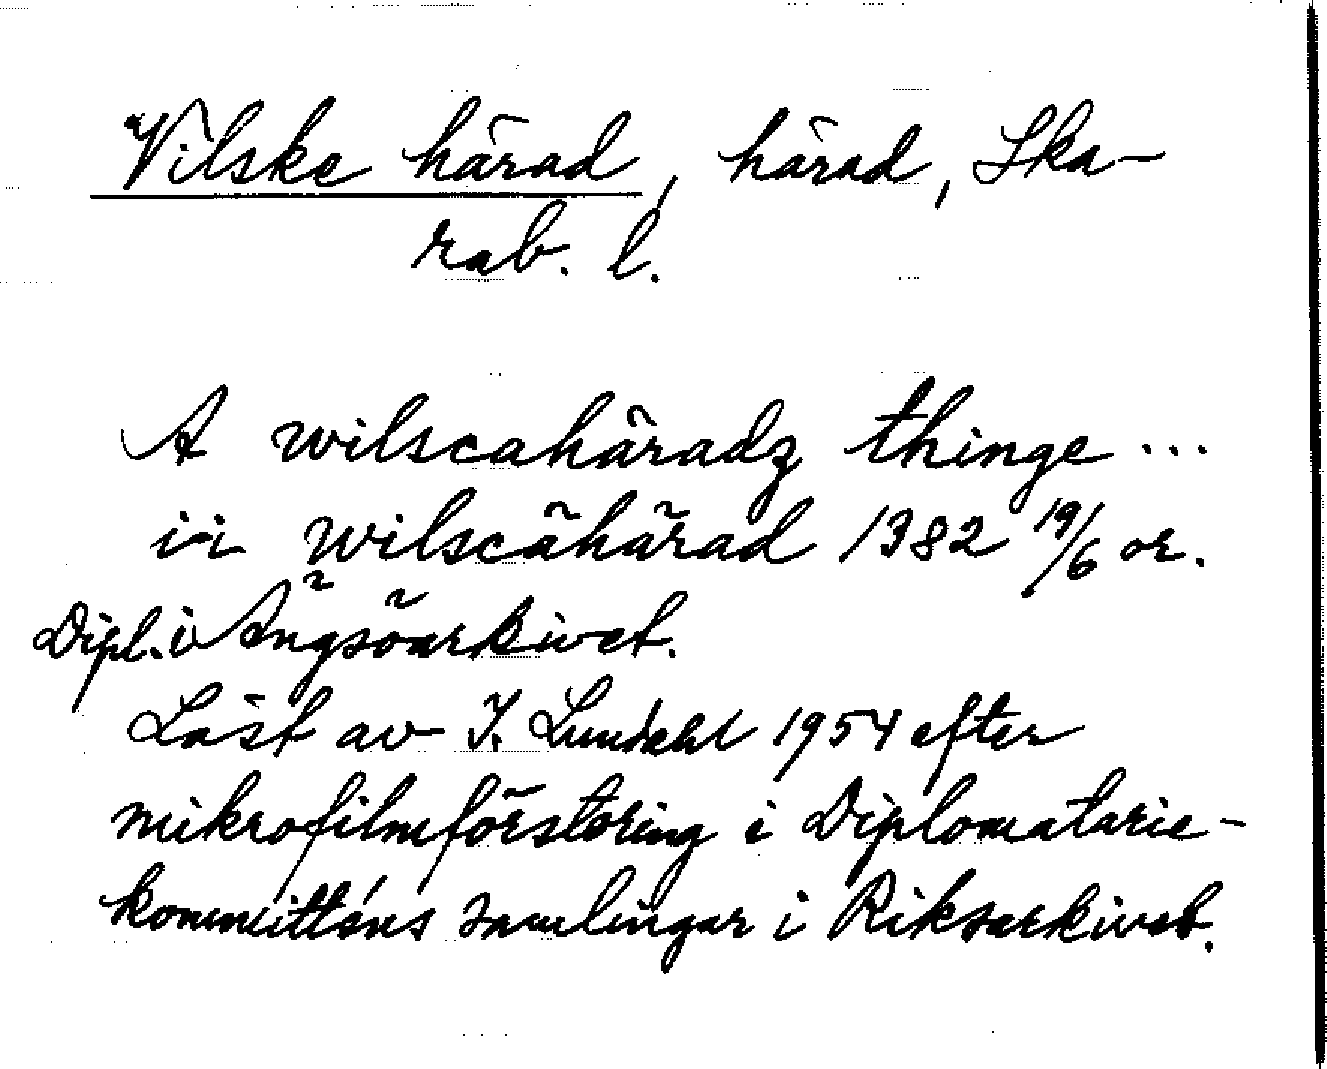 Vilske härad, härad, Ska-
rab. l.
A wilscahäradz thinge ...
i-i wilscähärad 1382 19/6 or.
Dipl. i Ängsöarkivet.
Läst av I. Lundahl 1954 efter
mikrofilmförstoring i Diplomatarie-
kommitténs samlingar i Riksarkivet.